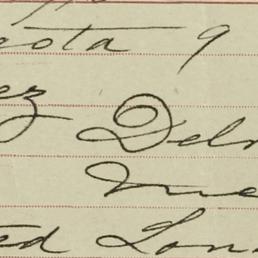 ota 9
ez Del
me
ed Lon